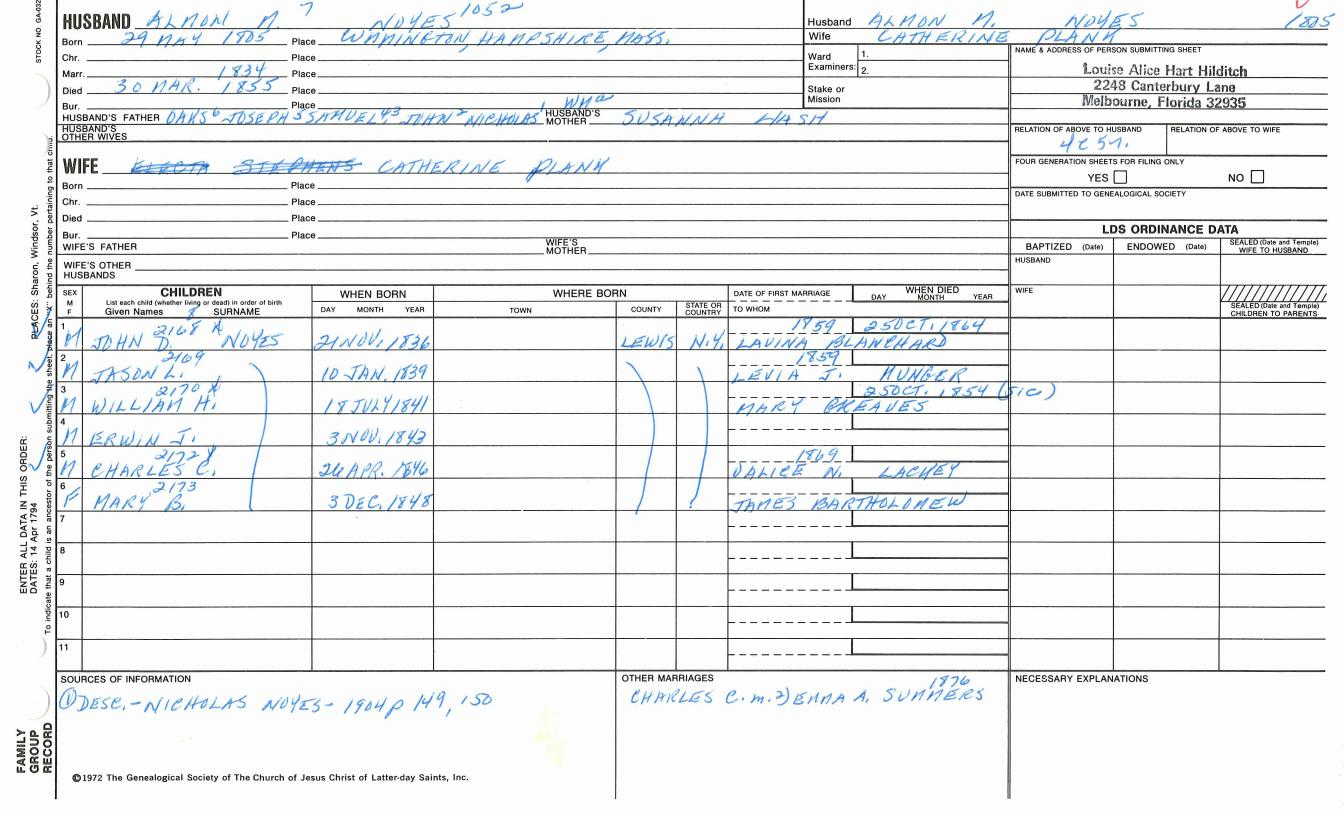 STOCK NO GA-032
HUSBAND ALMON M. 7 NOYES 1052
Born 29 MAY 1805 Place HAMPSHIRE, MASS.
Chr. Place
Marr. 1834 Place
Died 30 MAR. 1855 Place
Bur. Place
HUSBAND'S FATHER OAKS 6 JOSEPH 5 SAMUEL, 4 3 JOHN 2 NICHOLAS 1 Wm a HUSBAND'S MOTHER SUSANNA HASH
HUSBAND'S OTHER WIVES
WIFE ELECTA STEPHENS CATHERINE PLANK
Born Place
Chr. Place
Died Place
Bur. Place
WIFE'S FATHER WIFE'S MOTHER
WIFE'S OTHER HUSBANDS
Husband ALMON M. NOYES 1805
Wife CATHERINE PLANK
Ward Examiners: 1. 2.
Stake or Mission
NAME & ADDRESS OF PERSON SUBMITTING SHEET
Louise Alice Hart Hilditch
2248 Canterbury Lane
Melbourne, Florida 32935
RELATION OF ABOVE TO HUSBAND RELATION OF ABOVE TO WIFE
FOUR GENERATION SHEETS FOR FILING ONLY
YES NO
DATE SUBMITTED TO GENEALOGICAL SOCIETY
LDS ORDINANCE DATA
BAPTIZED (Date) ENDOWED (Date) SEALED (Date and Temple) WIFE TO HUSBAND
HUSBAND
WIFE
SEALED (Date and Temple) CHILDREN TO PARENTS
SEX M F CHILDREN WHEN BORN WHERE BORN DATE OF FIRST MARRIAGE WHEN DIED
List each child (whether living or dead) in order of birth
Given Names 8 SURNAME DAY MONTH YEAR TOWN COUNTY STATE OR COUNTRY TO WHOM DAY MONTH YEAR
1 2168 X 1859 25 OCT. 1864
M JOHN D. NOYES 21 NOV. 1836 LEWIS N.Y. LAVINA BLANCHARD
2 2169 1859
M JASON L. 10 JAN. 1839 LEVIA J. MUNGER
3 2170 X 25 OCT. 1854 (SIC)
M WILLIAM H. 18 JULY 1841 MARY GREAVES
4
M ERWIN J. 3 NOV. 1843
5 2172 1869
M CHARLES C. 26 APR. 1846 ALICE N. LACKEY
6 2173
F MARY B. 3 DEC. 1848 JAMES BARTHOLOMEW
7
8
9
10
11
SOURCES OF INFORMATION
① DESC. - NICHOLAS NOYES - 1904 p 149, 150
OTHER MARRIAGES
1876
CHARLES C. m. 2) EMMA A. SUMMERS
NECESSARY EXPLANATIONS
©1972 The Genealogical Society of The Church of Jesus Christ of Latter-day Saints, Inc.
FAMILY GROUP RECORD
ENTER ALL DATA IN THIS ORDER:
DATES: 14 Apr 1794 PLACES: Sharon, Windsor, Vt.
To indicate that a child is an ancestor of the person submitting the sheet, place an "X" behind the number pertaining to that child.